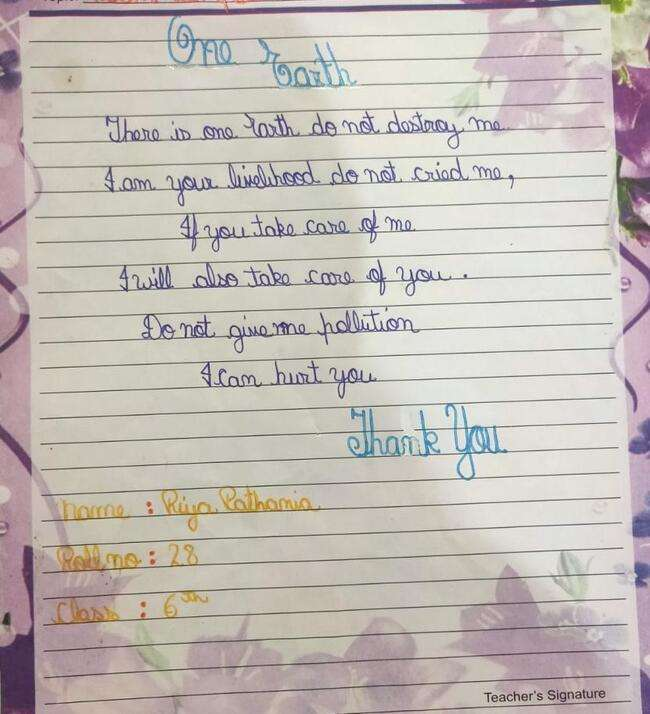 One Earth
There is one Earth do not destroy me.
I am your livelihood do not cried me,
If you take care of me
I will also take care of you.
Do not give me pollution
I can hurt you
Thank You
Name : Riya Pathania
Roll no : 28
Class : 6th
Teacher's Signature